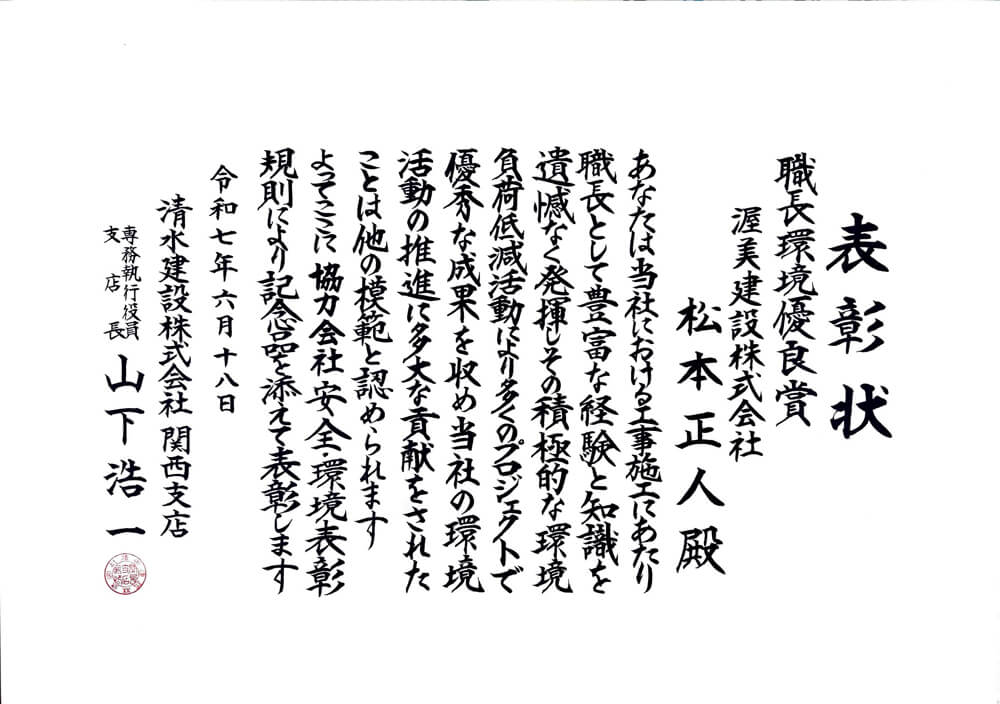 表彰状
職長環境優良賞
渥美建設株式会社
松本正人殿
あなたは当社における工事施工にあたり
職長として豊富な経験と知識を
遺憾なく発揮しその積極的な環境
負荷低減活動により多くのプロジェクトで
優秀な成果を収め当社の環境
活動の推進に多大な貢献をされた
ことは他の模範と認められます
よってここに協力会社安全・環境表彰
規則により記念品を添えて表彰します
令和七年六月十八日
清水建設株式会社 関西支店
専務執行役員
支店長
山下浩一